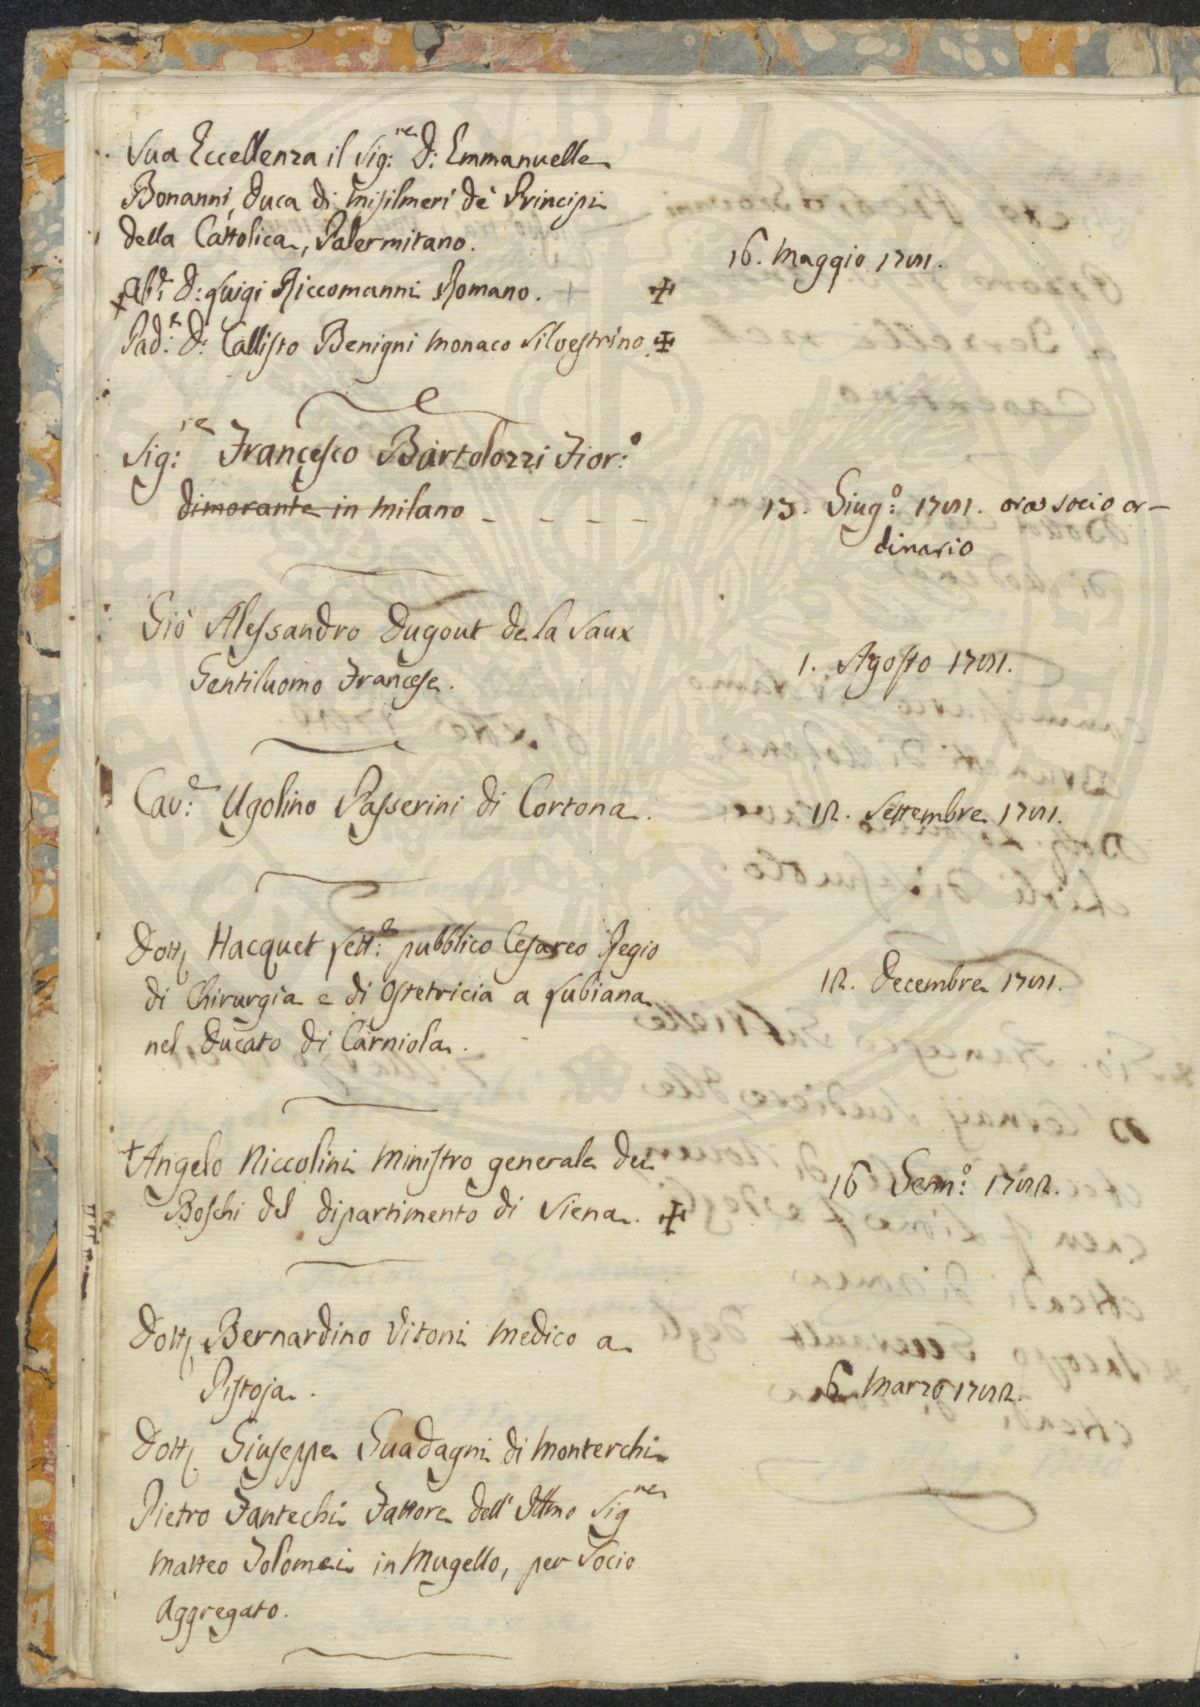 Sua Eccellenza il Sig:re D: Emmanuelle
Bonanni Duca di Misilmeri de' Principi
della Cattolica, Palermitano.
16. Maggio 1781.
Ab:e D: Luigi Riccomanni Romano.
Pad:e D: Callisto Benigni Monaco Silvestrino.
Sig:re Francesco Bartolozzi Fior:o
dimorante in Milano - - - -
13. Giug:o 1781. ora socio or-
dinario
Gio Alessandro Dugout de la Vaux
Gentiluomo Francese.
1. Agosto 1781.
Cav:e Ugolino Passerini di Cortona.
12. Settembre 1781.
Dott. Hacquet Lett:e pubblico Cesareo Regio
di Chirurgia e di Ostetricia a Lubiana
nel Ducato di Carniola.
12. Decembre 1781.
Angelo Niccolini Ministro generale dei
Boschi del dipartimento di Siena.
16 Genn:o 1782.
Dott. Bernardino Vitoni Medico a
Pistoja.
6. Marzo 1782.
Dott. Giuseppe Guadagni di Monterchi
Pietro Fantechi Fattore dell' Illmo Sigre
Matteo Tolomei in Mugello, per Socio
Aggregato.